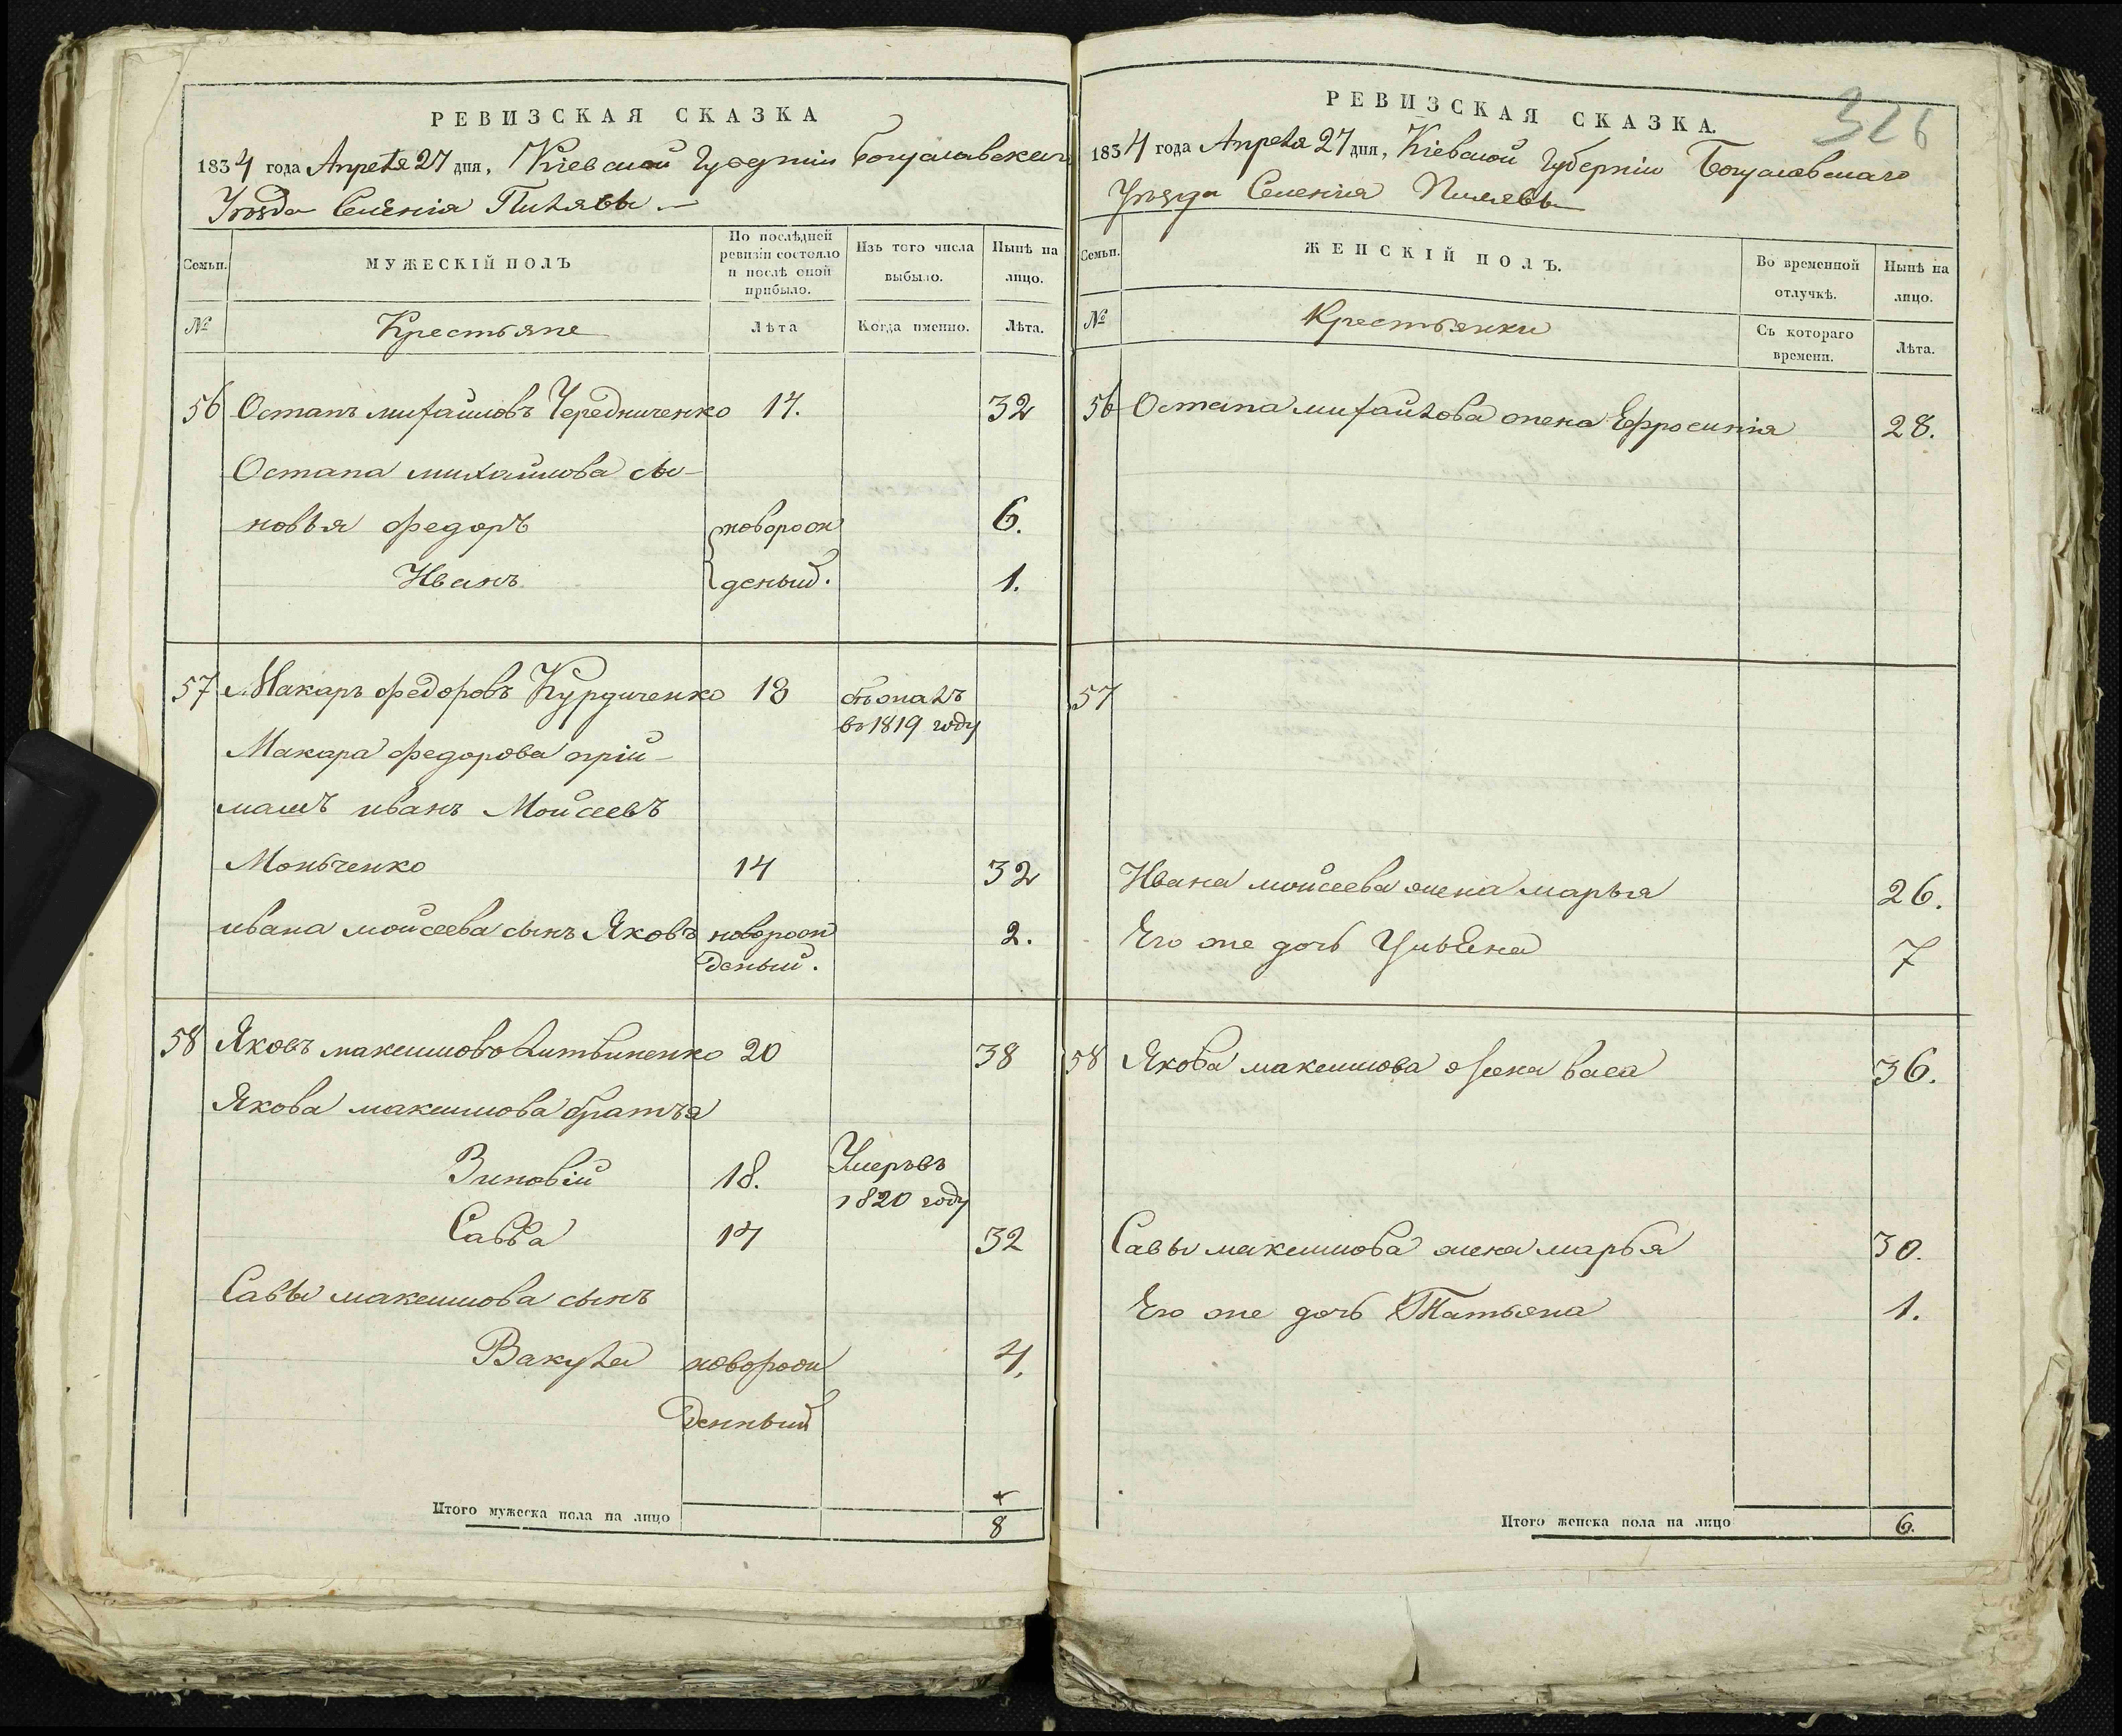 РЕВИЗСКАЯ СКАЗКА
1834 года Апреля 27 дня, Кіевской Губерніи Богуславскаго
Уѣзда Селенія Пиляви
Семьи.
МУЖЕСКІЙ ПОЛЪ
По послѣдней ревизіи состояло и послѣ оной прибыло.
Изъ того числа выбыло.
Нынѣ на лицо.
№
Крестьяне
Лѣта
Когда именно.
Лѣта.
56 Остапъ михайловъ Чередниченко 17. 32
Остапа михайлова сы-
новья Федоръ новорож 6.
Иванъ деный. 1.
57 Макаръ Федоровъ Курдиченко 18
бѣжалъ
въ 1819 году
Макара Федорова прій-
машъ иванъ Мойсеевъ
Моньченко 14 32
ивана мойсеева сынъ Яковъ новорож 2.
деный.
58 Яковъ максимовъ Литвиненко 20 38
Якова максимова братья
Зиновій 18. Умеръ въ
1820 году
Савва 17 32
Савы максимова сынъ
Вакула новорож 4.
денный
Итого мужеска пола на лицо 8
326
РЕВИЗСКАЯ СКАЗКА.
1834 года Апреля 27 дня, Кіевской Губерніи Богуславскаго
Уѣзда Селенія Пилявы
Семьи.
ЖЕНСКІЙ ПОЛЪ.
Во временной отлучкѣ.
Нынѣ на лицо.
№
Крестьянки
Съ котораго времени.
Лѣта.
56 Остапа михайлова жена Ефросинія 28.
57
Ивана мойсеева жена марья 26.
Его же дочь Ульяна 7
58 Якова максимова жена васа 36.
Савы максимова жена марья 30.
Его же дочь Татьяна 1.
Итого женска пола на лицо 6.